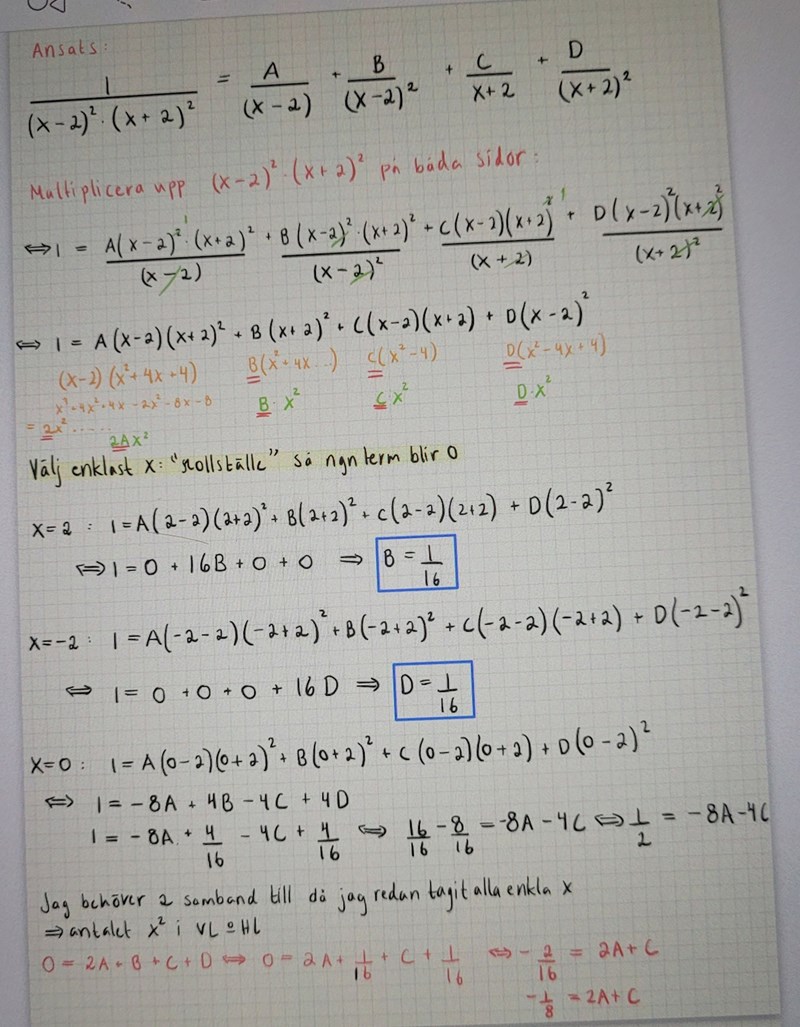 Ansats:
1/((x-2)²·(x+2)²) = A/(x-2) + B/(x-2)² + C/(x+2) + D/(x+2)²
Multiplicera upp (x-2)²·(x+2)² på båda sidor:
⇔ 1 = A(x-2)²·(x+2)²/(x-2) + B(x-2)²·(x+2)²/(x-2)² + C(x-2)(x+2)²/(x+2) + D(x-2)²(x+2)²/(x+2)²
⇔ 1 = A(x-2)(x+2)² + B(x+2)² + C(x-2)(x+2) + D(x-2)²
(x-2)(x²+4x+4) B(x²+4x...) C(x²-4) D(x²-4x+4)
x³+4x²+4x-2x²-8x-8 B·x² C·x² D·x²
= 2x².....
2Ax²
Välj enklast x: "nollställe" så ngn term blir 0
x=2: 1=A(2-2)(2+2)²+B(2+2)²+C(2-2)(2+2)+D(2-2)²
⇔ 1=0+16B+0+0 ⇒ B=1/16
x=-2: 1=A(-2-2)(-2+2)²+B(-2+2)²+C(-2-2)(-2+2)+D(-2-2)²
⇔ 1=0+0+0+16D ⇒ D=1/16
x=0: 1=A(0-2)(0+2)²+B(0+2)²+C(0-2)(0+2)+D(0-2)²
⇔ 1=-8A+4B-4C+4D
1=-8A+4/16-4C+4/16 ⇔ 16/16-8/16=-8A-4C ⇔ 1/2=-8A-4C
Jag behöver 2 samband till då jag redan tagit alla enkla x
⇒ antalet x² i VL o HL
0=2A+B+C+D ⇔ 0=2A+1/16+C+1/16 ⇔ -2/16=2A+C
-1/8=2A+C